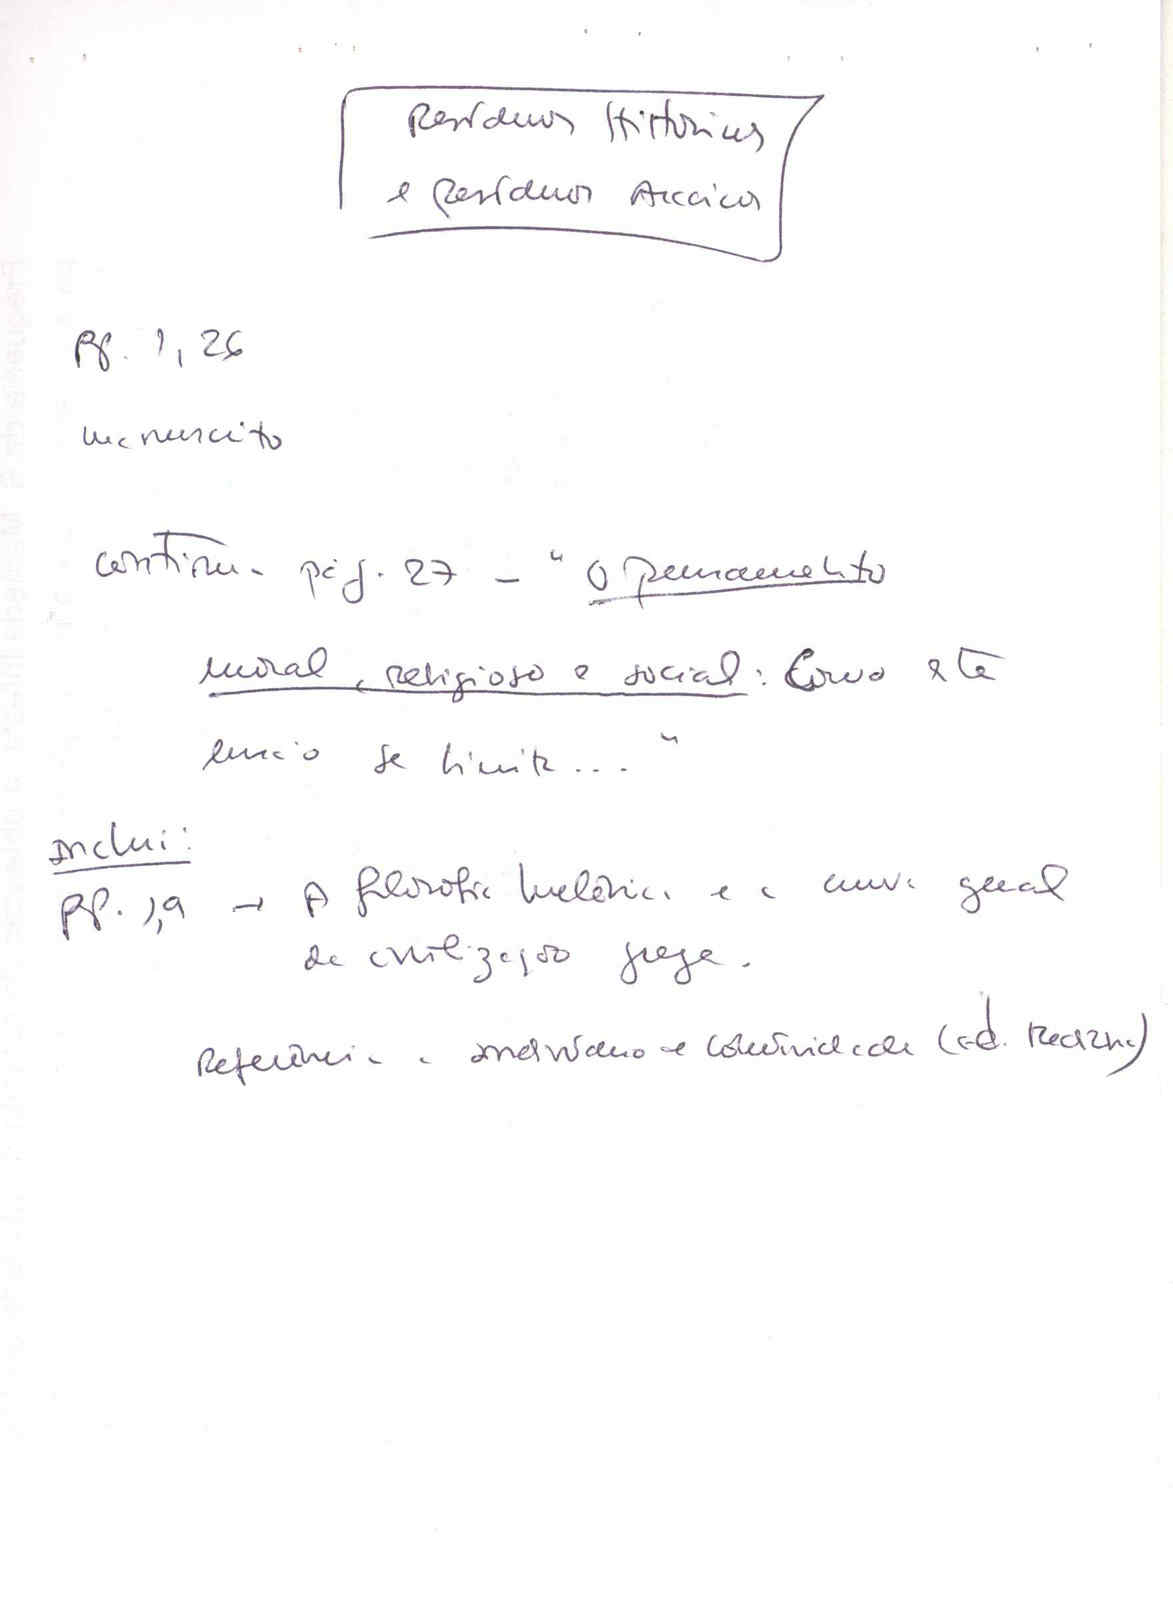 Resíduos Históricos
e Resíduos Arcaicos
pp. 1, 26
manuscrito
continua pág. 27 - "O pensamento
moral, religioso e social: Como este
ensaio se limita..."
Inclui:
pp. 1,9 → A filosofia helênica e a curva geral
da civilização grega.
Referência a indivíduo e comunidade (ed.